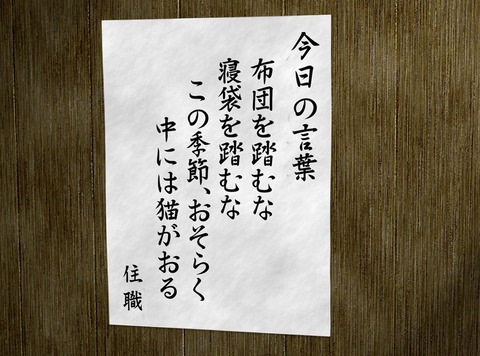 今日の言葉
布団を踏むな
寝袋を踏むな
この季節、おそらく
中には猫がおる
住職